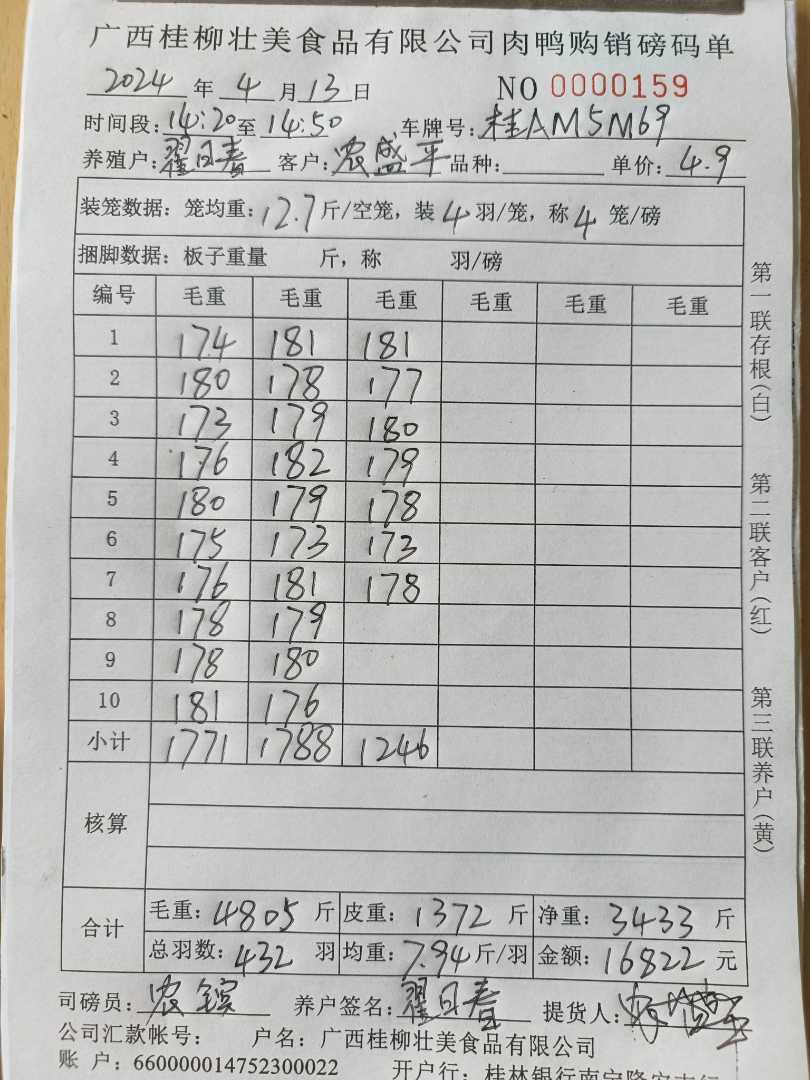 广西桂柳壮美食品有限公司肉鸭购销磅码单
2024 年 4 月 13 日 NO 0000159
时间段：14:20 至 14:50 车牌号：桂AM5M69
养殖户：翟日春 客户：农盛平 品种： 单价：4.9
装笼数据：笼均重：12.7 斤/空笼，装 4 羽/笼，称 4 笼/磅
捆脚数据：板子重量 斤，称 羽/磅
编号 毛重 毛重 毛重 毛重 毛重 毛重
1 174 181 181
2 180 178 177
3 173 179 180
4 176 182 179
5 180 179 178
6 175 173 173
7 176 181 178
8 178 179
9 178 180
10 181 176
小计 1771 1788 1246
核算
合计 毛重：4805 斤 皮重：1372 斤 净重：3433 斤
总羽数：432 羽 均重：7.94 斤/羽 金额：16822 元
司磅员：农镔 养户签名：翟日春 提货人：
公司汇款帐号： 户名：广西桂柳壮美食品有限公司
账 户：660000014752300022 开户行：桂林银行南宁隆安支行
第一联存根（白）
第二联客户（红）
第三联养户（黄）